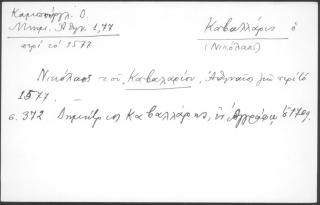 Καμπούρογλ. Δ.
Μνημ. Αθην. 1,77
περί το 1577
Καβαλλάρις ο
(Νικόλαος)
Νικόλαος του Καβαλαρίου, Αθηναίος περί τό
1577.
σ. 372 Δημήτριος Καβαλλάρης, εν